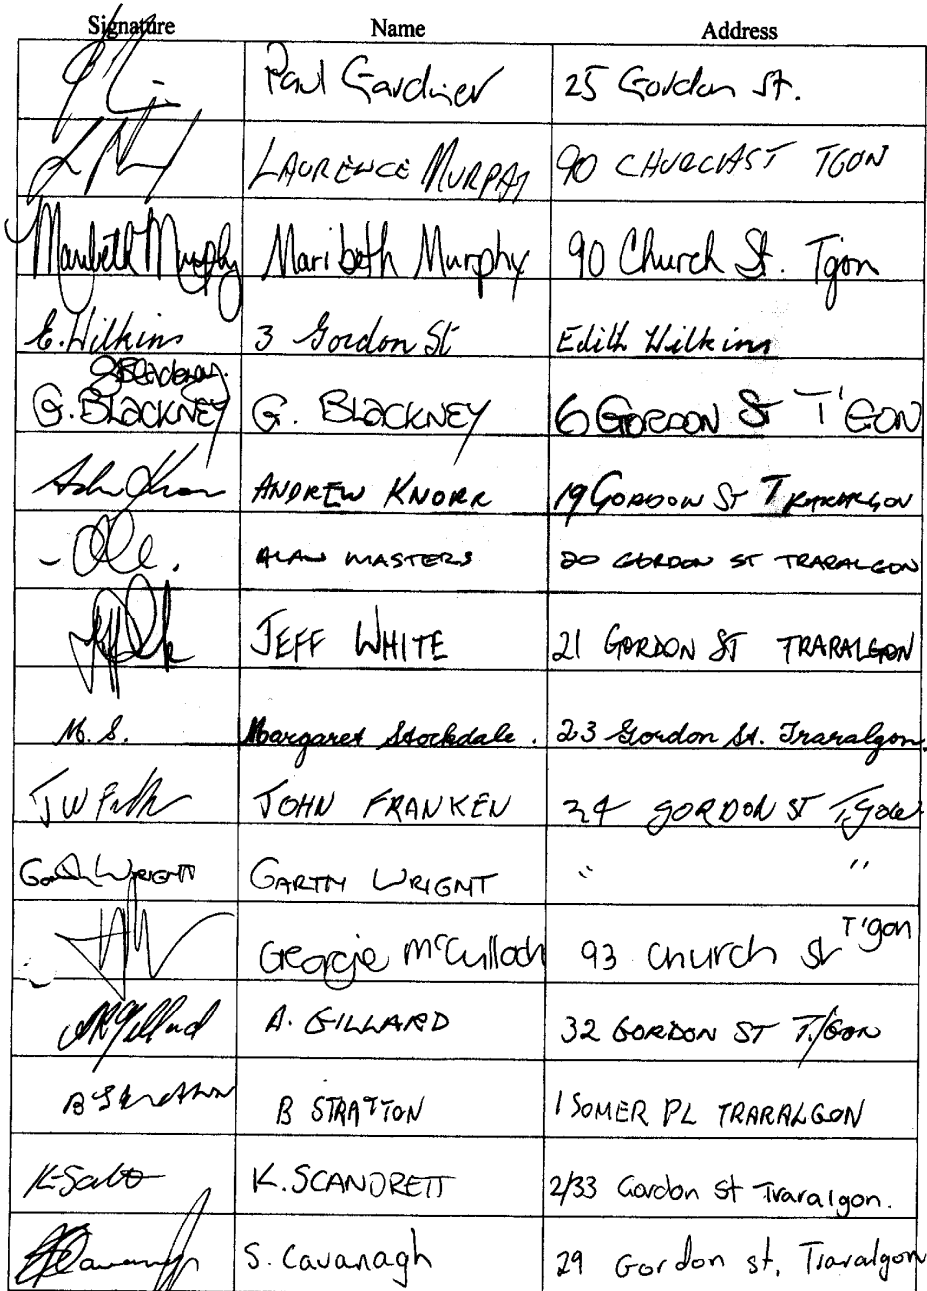 Signature Name Address
Paul Gardiner 25 Gordon St.
LAURENCE MURPHY 90 CHURCH ST TGON
Maribeth Murphy Maribeth Murphy 90 Church St. Tgon
E. Wilkins 3 Gordon St Edith Wilkins
G. BLACKNEY G. BLACKNEY 6 GORDON St T'GON
ANDREW KNORR 19 GORDON ST TRARALGON
ALAN MASTERS 20 GORDON ST TRARALGON
JEFF WHITE 21 GORDON ST TRARALGON
M. S. Margaret Stockdale. 23 Gordon St. Traralgon.
JOHN FRANKEN 24 GORDON ST T,gon
GARTH WRIGHT GARTH WRIGHT " "
Georgie McCulloch 93 Church St T'gon
A. GILLARD 32 GORDON ST T/GON
B STRATTON 1 SOMER PL TRARALGON
K. SCANDRETT 2/33 Gordon St Traralgon.
S. Cavanagh 29 Gordon st, Traralgon